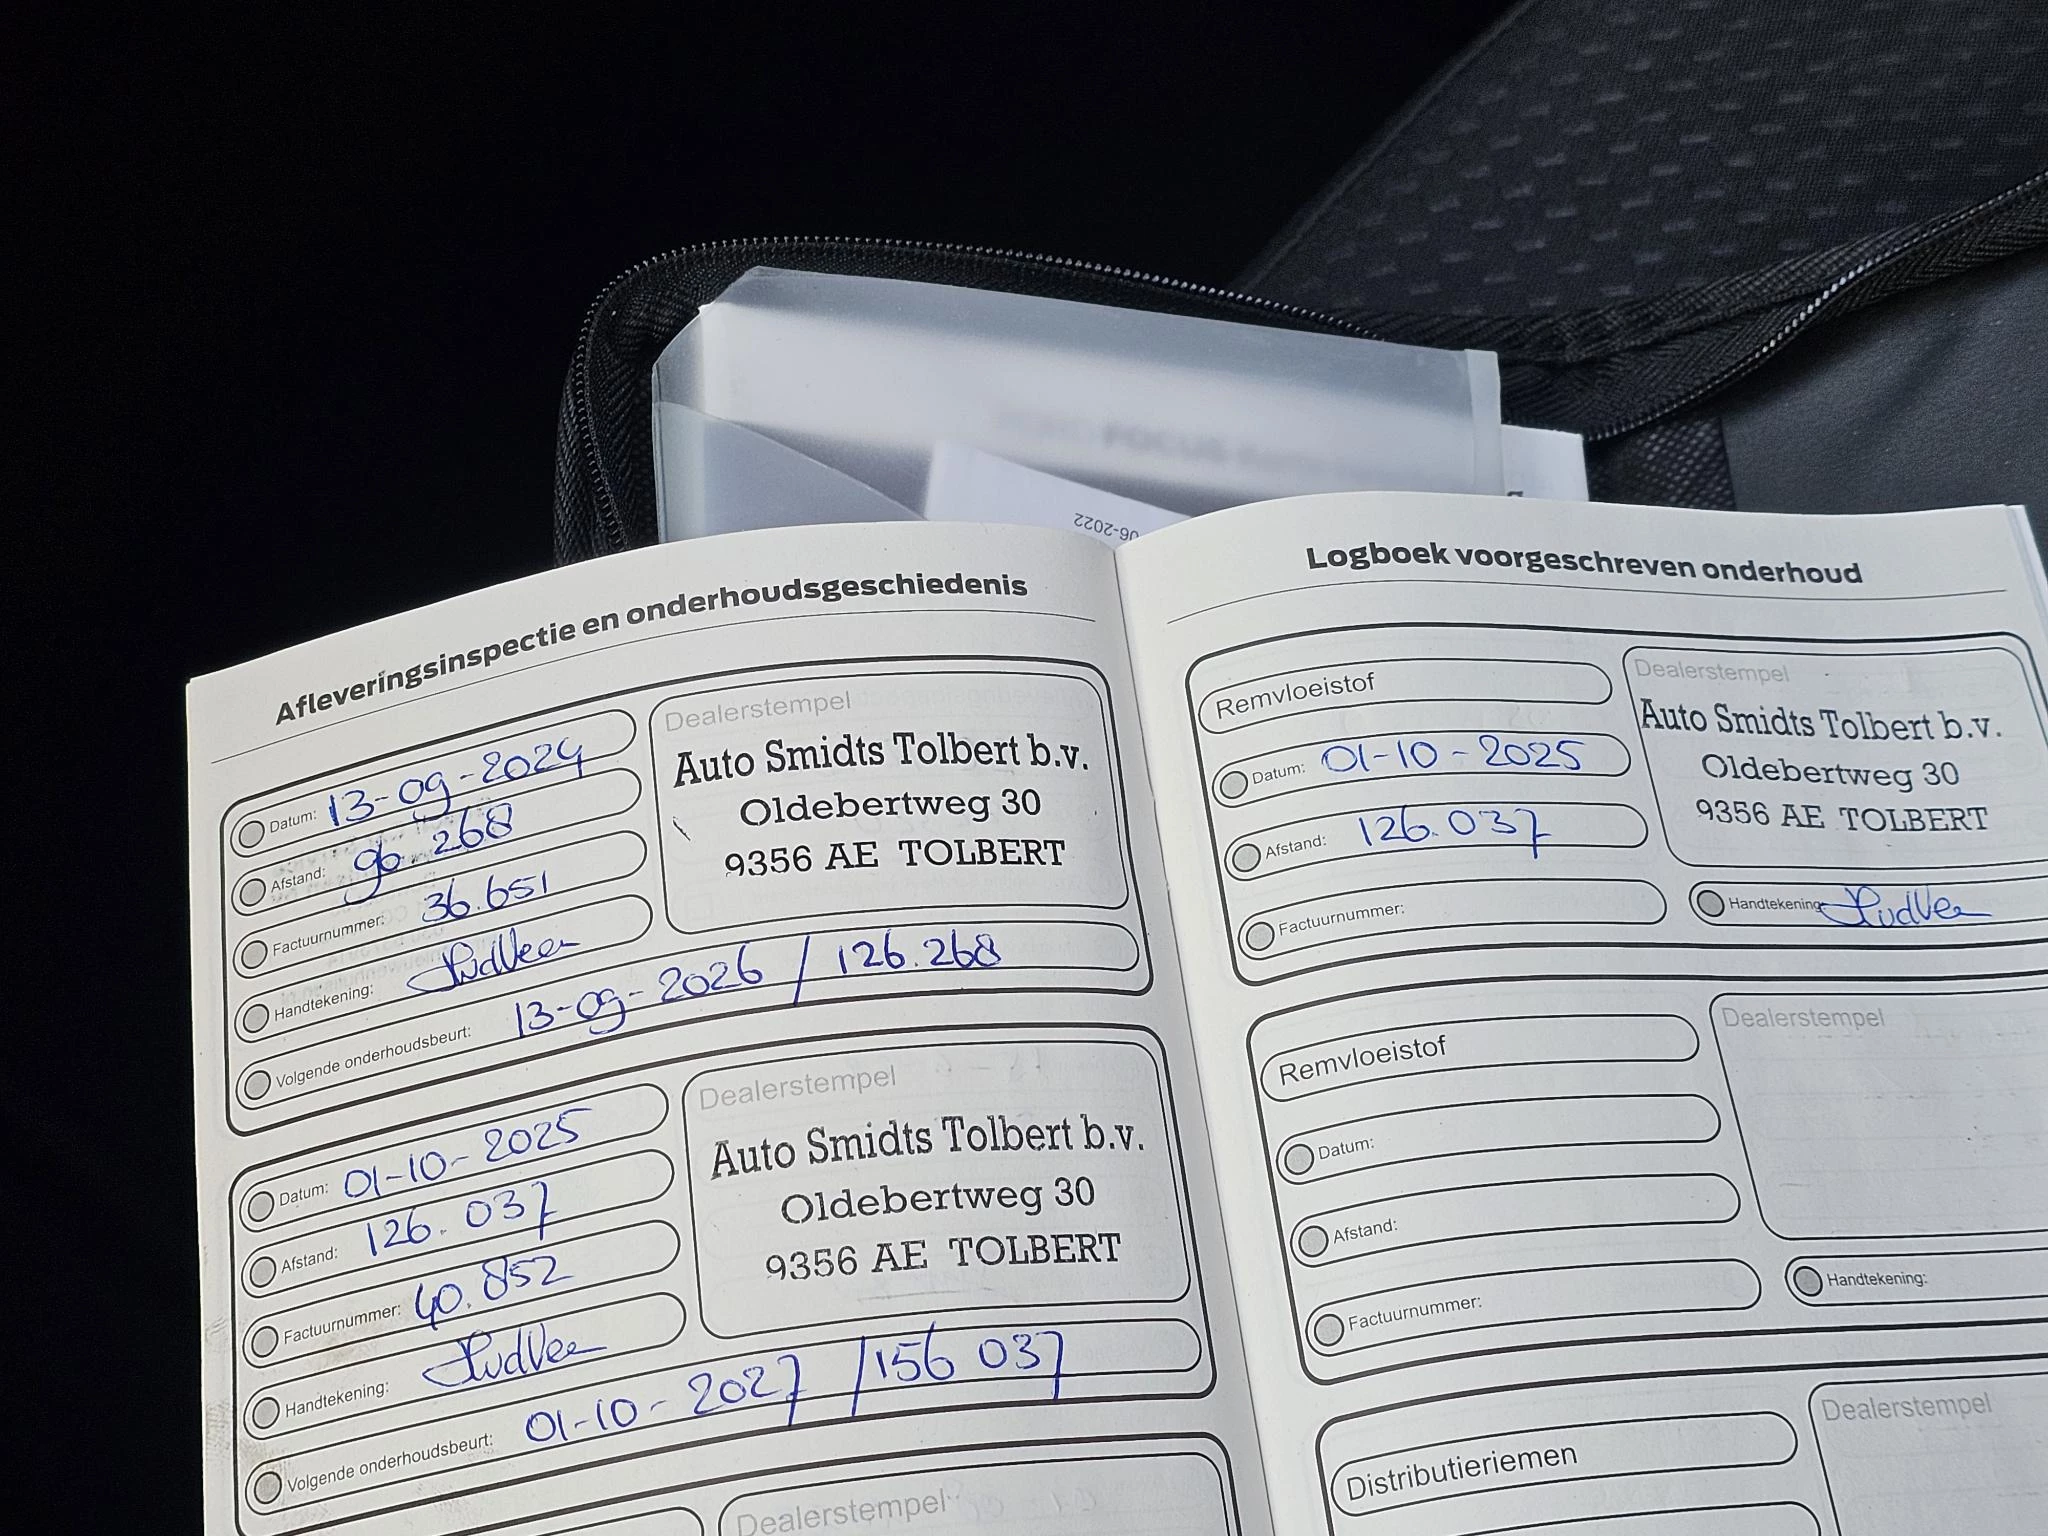 FOCUS
06-2022
Afleveringsinspectie en onderhoudsgeschiedenis
Dealerstempel
Datum: 13-09-2024
Afstand: 96.268
Factuurnummer: 36.651
Handtekening:
Volgende onderhoudsbeurt: 13-09-2026 / 126.268
Auto Smidts Tolbert b.v.
Oldebertweg 30
9356 AE TOLBERT
Dealerstempel
Datum: 01-10-2025
Afstand: 126.037
Factuurnummer: 40.852
Handtekening:
Volgende onderhoudsbeurt: 01-10-2027 / 156 037
Auto Smidts Tolbert b.v.
Oldebertweg 30
9356 AE TOLBERT
Dealerstempel
Logboek voorgeschreven onderhoud
Remvloeistof
Datum: 01-10-2025
Afstand: 126.037
Factuurnummer:
Dealerstempel
Auto Smidts Tolbert b.v.
Oldebertweg 30
9356 AE TOLBERT
Handtekening
Remvloeistof
Datum:
Afstand:
Factuurnummer:
Dealerstempel
Handtekening:
Distributieriemen
Dealerstempel